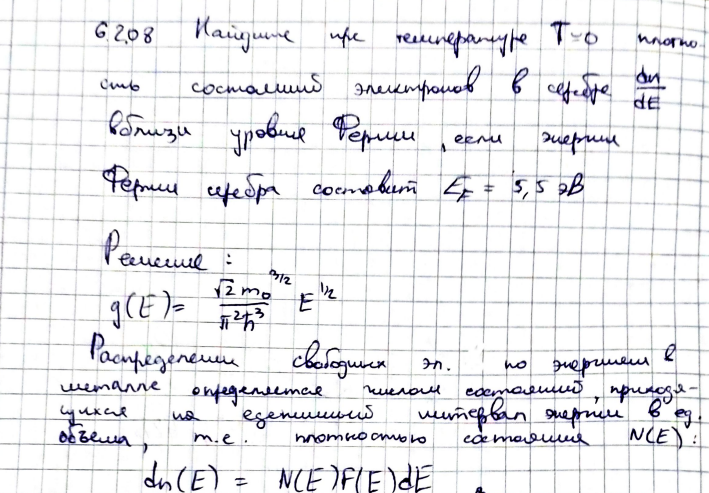 6.208 Найдите при температуре T=0 плотно
сть состояний электронов в серебре dn/dE
вблизи уровня Ферми, если энергия
Ферми серебра составит E_F = 5,5 эВ
Решение:
g(E) = √2 m₀^{3/2} / π²ħ³ E^{1/2}
Распределении свободных эл. по энергиям в
металле определяется числом состояний, приходя-
щихся на единичный интервал энергии в ед.
объёма, т.е. плотностью состояния N(E):
dn(E) = N(E)F(E)dE